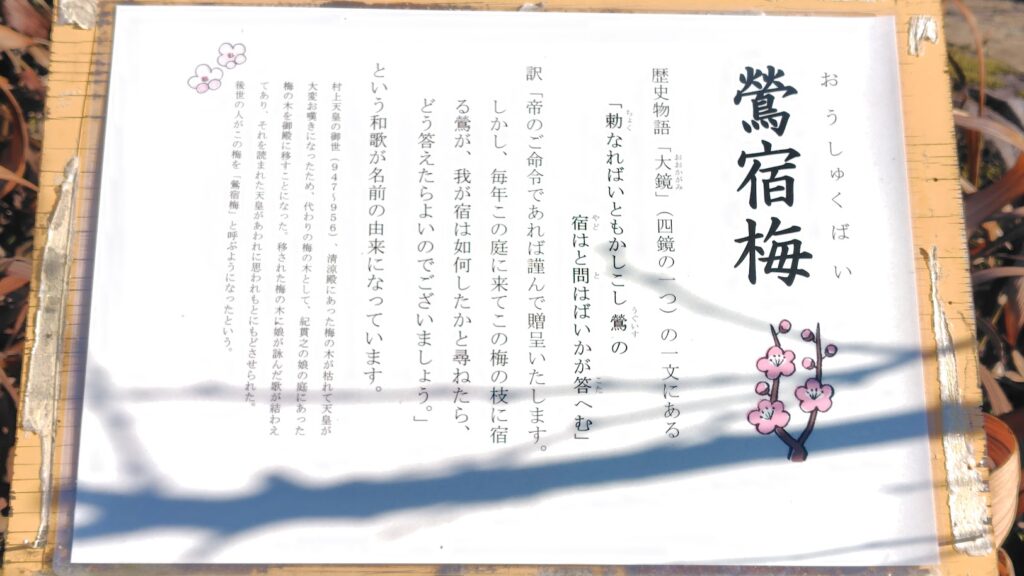 おうしゅくばい
鶯宿梅
歴史物語「大鏡」(四鏡の一つ)の一文にある
おおかがみ
「勅なればいともかしこし鶯の
ちょく
うぐいす
宿はと問はばいかが答へむ」
やど
と
こた
訳「帝のご命令であれば謹んで贈呈いたします。
しかし、毎年この庭に来てこの梅の枝に宿
る鶯が、我が宿は如何したかと尋ねたら、
どう答えたらよいのでございましょう。」
という和歌が名前の由来になっています。
村上天皇の御世(947〜956)、清涼殿にあった梅の木が枯れて天皇が
大変お嘆きになったため、代わりの梅の木として、紀貫之の娘の庭にあった
梅の木を御殿に移すことになった。移された梅の木に娘が詠んだ歌が結わえ
てあり、それを読まれた天皇があわれに思われもとにもどさせられた。
後世の人がこの梅を「鶯宿梅」と呼ぶようになったという。